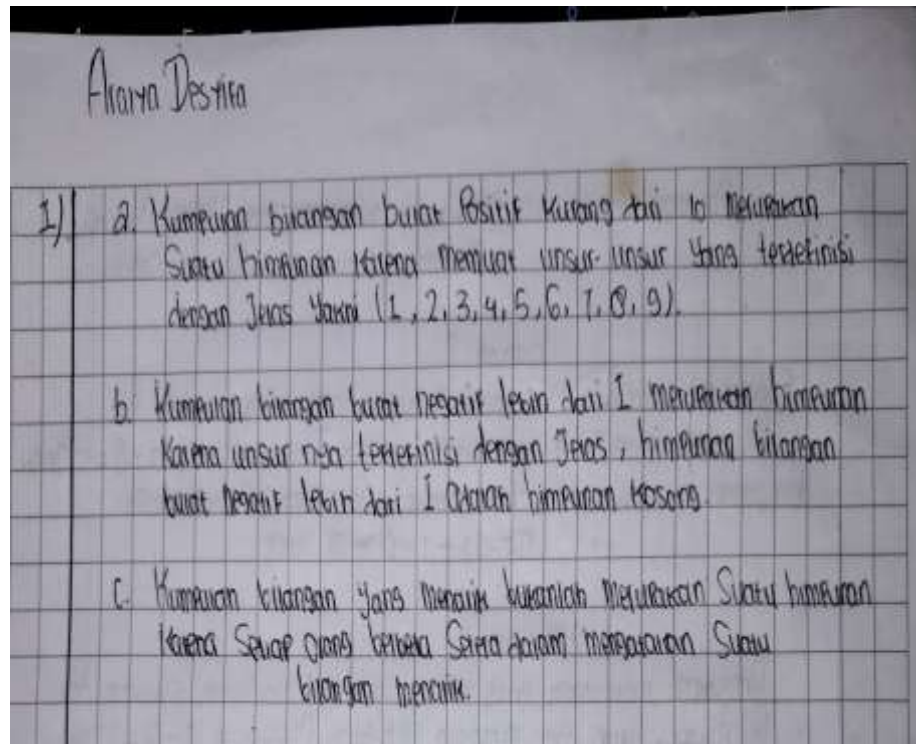 Desyira
1) a. Kumpulan bilangan bulat Positif kurang dari 10 merupakan
Suatu himpunan karena memuat unsur-unsur yang terdefinisi
dengan Jelas Yakni (1, 2, 3, 4, 5, 6, 7, 8, 9).
b. Kumpulan bilangan bulat negatif lebih dari 1 merupakan himpunan
Karena unsur nya terdefinisi dengan Jelas, himpunan bilangan
bulat negatif lebih dari 1 adalah himpunan kosong.
c. Kumpulan bilangan yang menarik bukanlah merupakan Suatu himpunan
karena Setiap orang berbeda Selera dalam mengatakan Suatu
bilangan menarik.